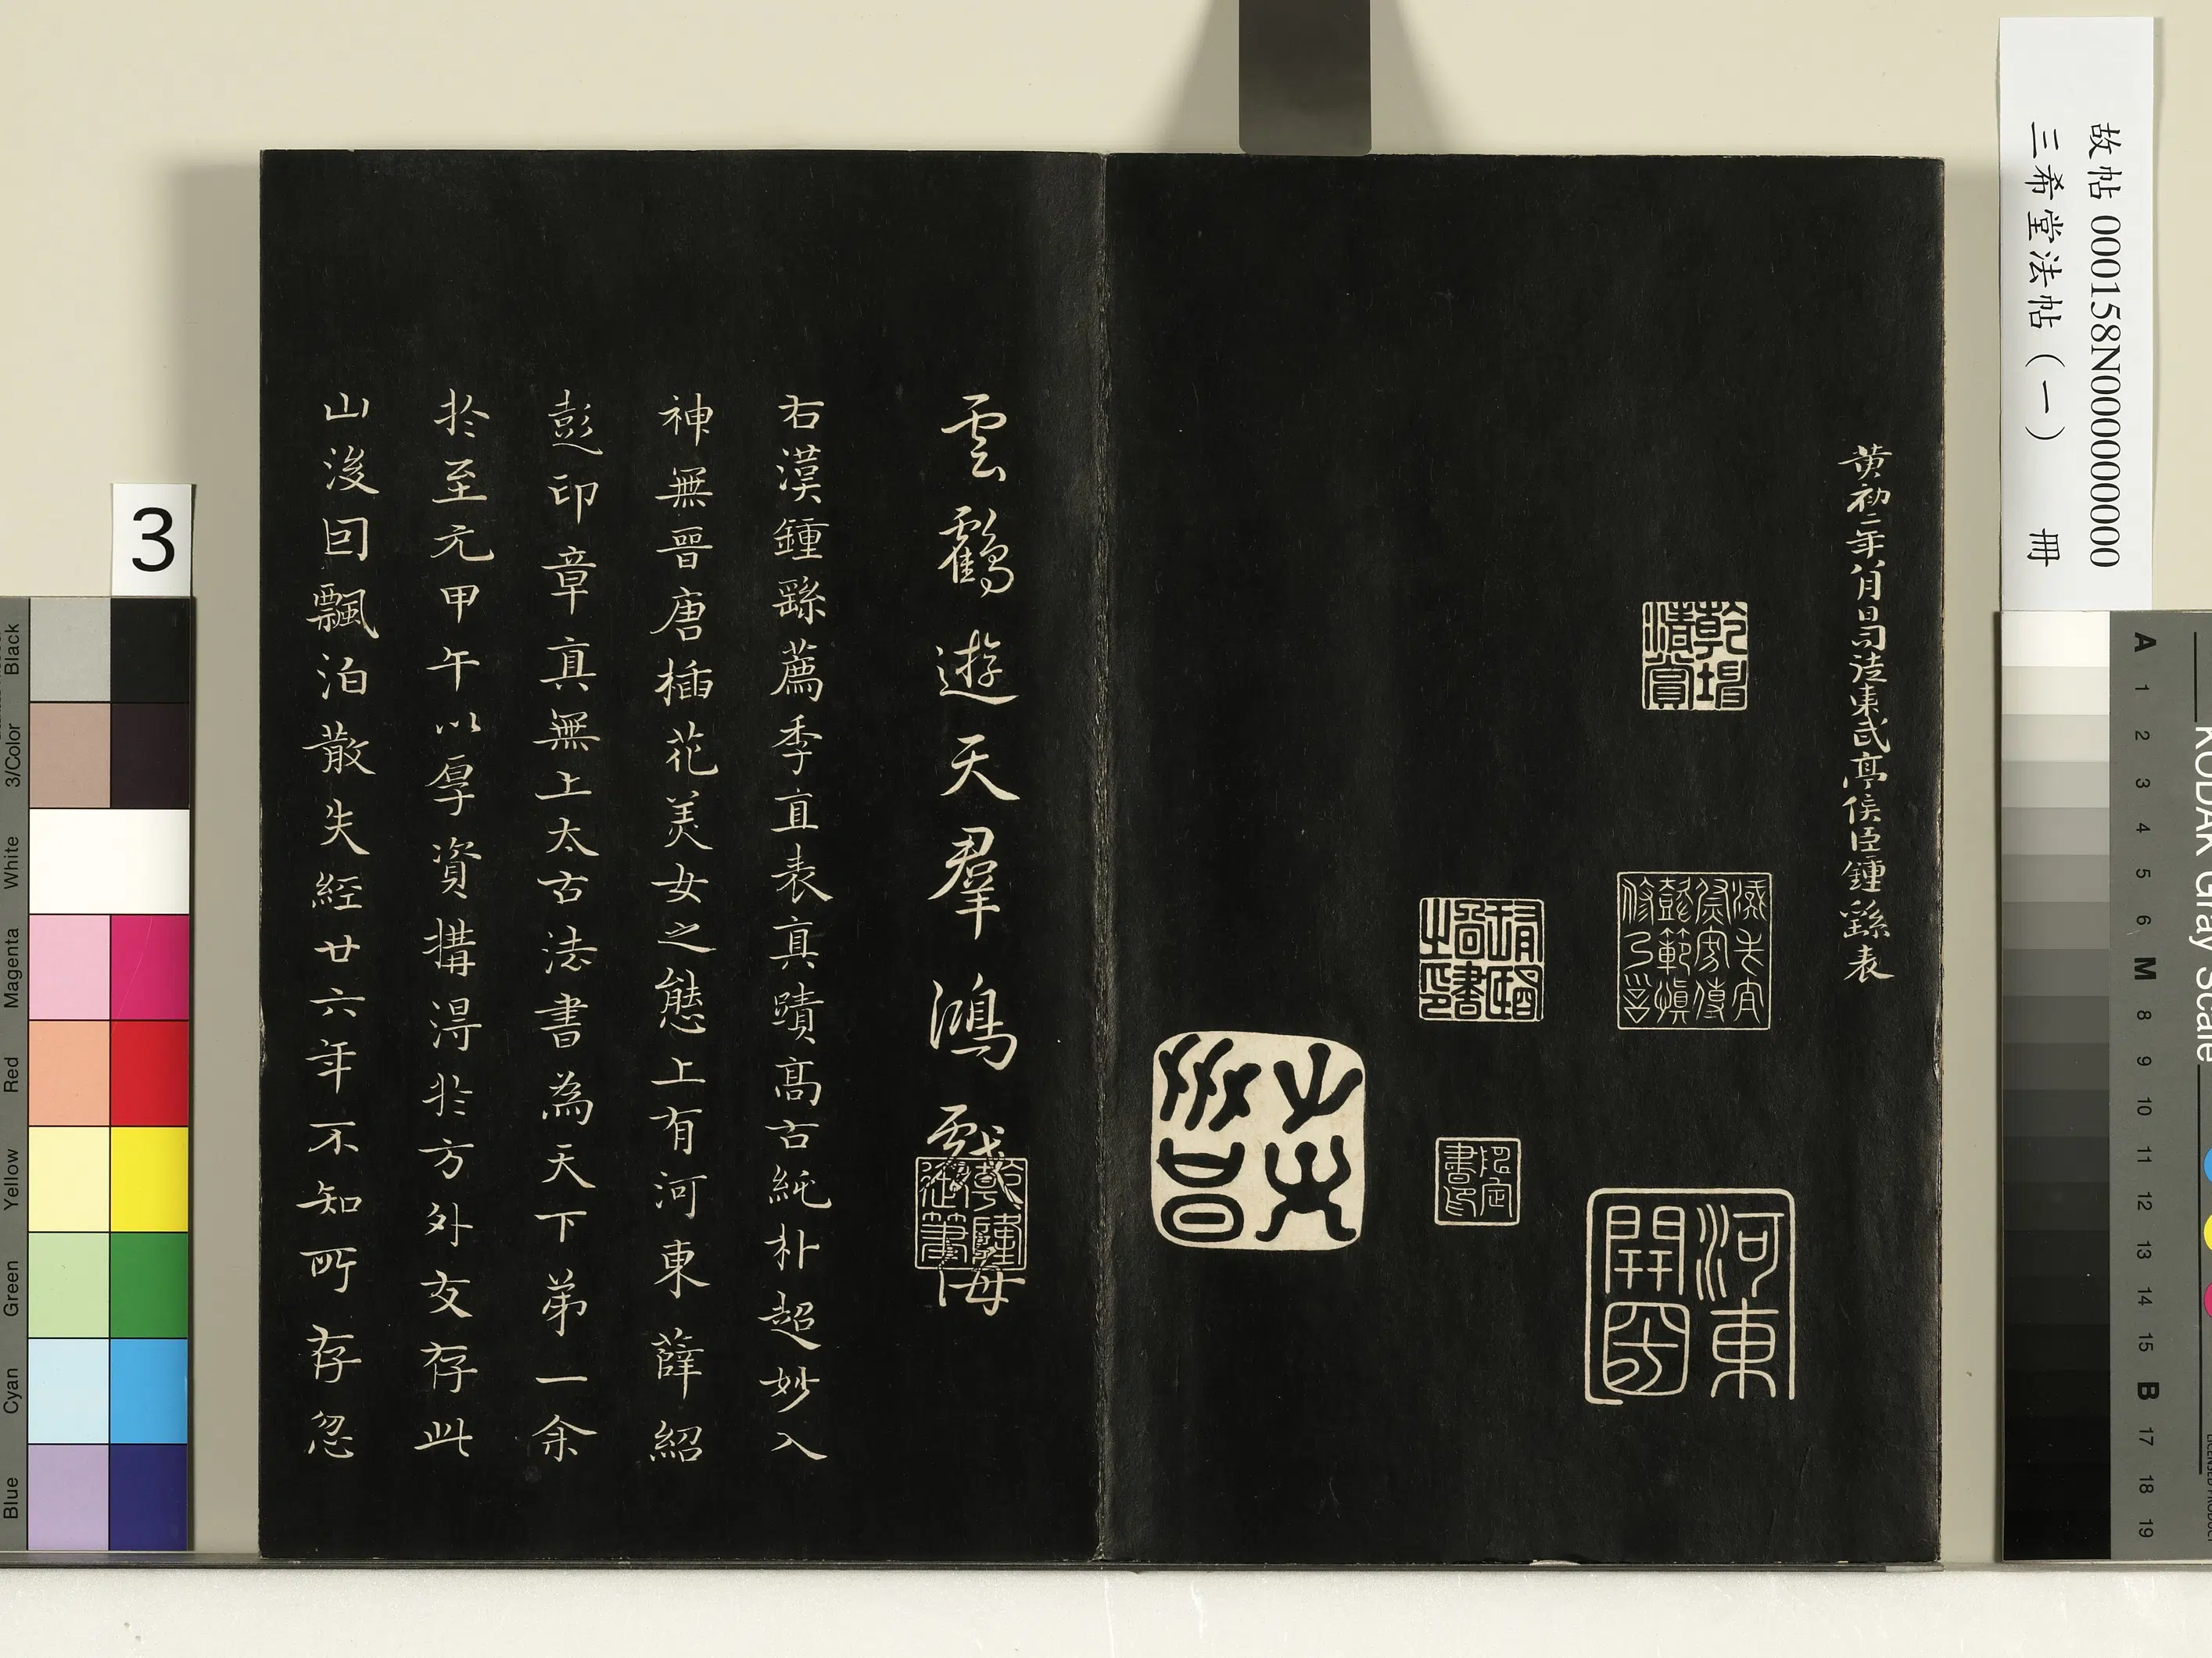 故帖 000158N000000000
三希堂法帖（一） 冊
黄初二年八月日司徒東武亭侯臣鍾繇表
乾隆御筆
河東
雲鶴遊天羣鴻戲海
右漢鍾繇薦季直表真蹟高古純朴超妙入
神無晉唐插花美女之態上有河東薛紹
彭印章真無上太古法書為天下第一余
於至元甲午以厚資搆得於方外友存此
山後囙飄泊散失經廿六年不知所存忽
3
Black
3/Color
White
Magenta
Red
Yellow
Green
Cyan
Blue
KODAK Gray Scale
A 1 2 3 4 5 6 M 8 9 10 11 12 13 14 15 B 17 18 19